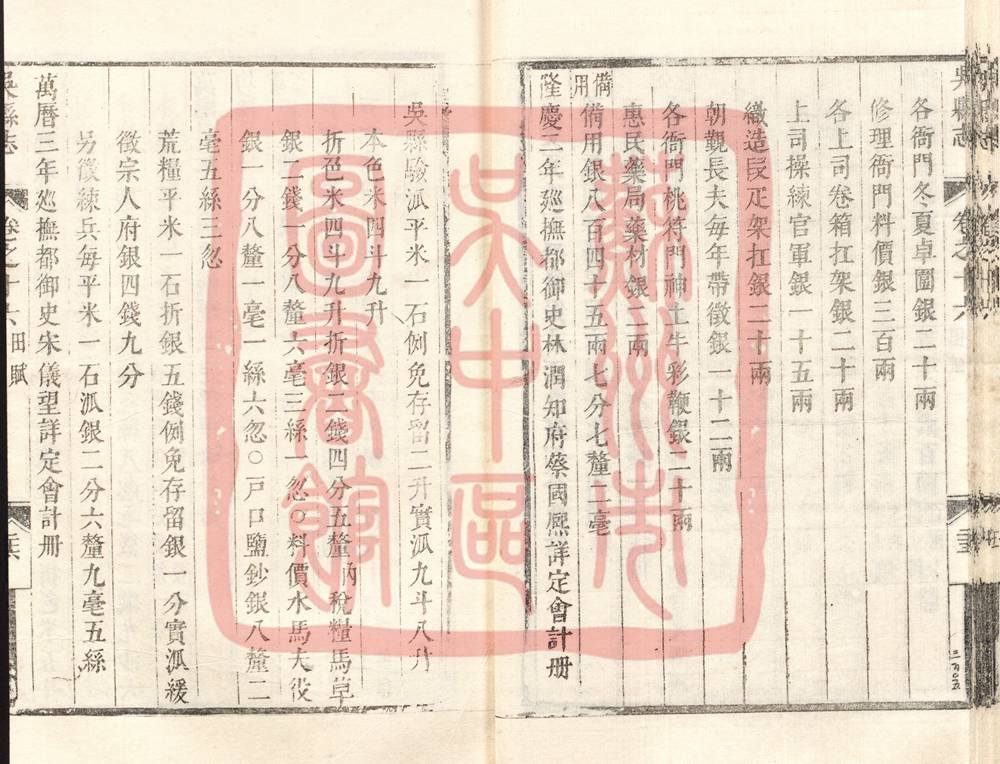 吳縣志
卷之十六
各衙門冬夏卓圍銀二十兩
修理衙門料價銀三百兩
各上司卷箱扛架銀二十兩
上司操練官軍銀一十五兩
織造段疋架扛銀二十兩
朝覲長夫每年帶徵銀一十二兩
各衙門桃符門神土牛彩鞭銀二十兩
惠民藥局藥材銀二兩
備用
備用銀八百四十五兩七分七釐二毫
隆慶三年廵撫都御史林潤知府蔡國熈詳定會計册
吳縣驗派平米一石例免存留二升實派九斗八升
本色米四斗九升
折色米四斗九升折銀二錢四分五釐納稅糧馬草
銀二錢一分八釐六毫三絲一忽○料價水馬夫役
銀一分八釐一毫一絲六忽○戸口鹽鈔銀八釐二
毫五絲三忽
荒糧平米一石折銀五錢例免存留銀一分實派緩
徵宗人府銀四錢九分
另徵練兵每平米一石派銀二分六釐九毫五絲
萬曆三年廵撫都御史宋儀望詳定會計册
吳縣志
卷之十六
田賦
蘇州市
吴中區
圖書館